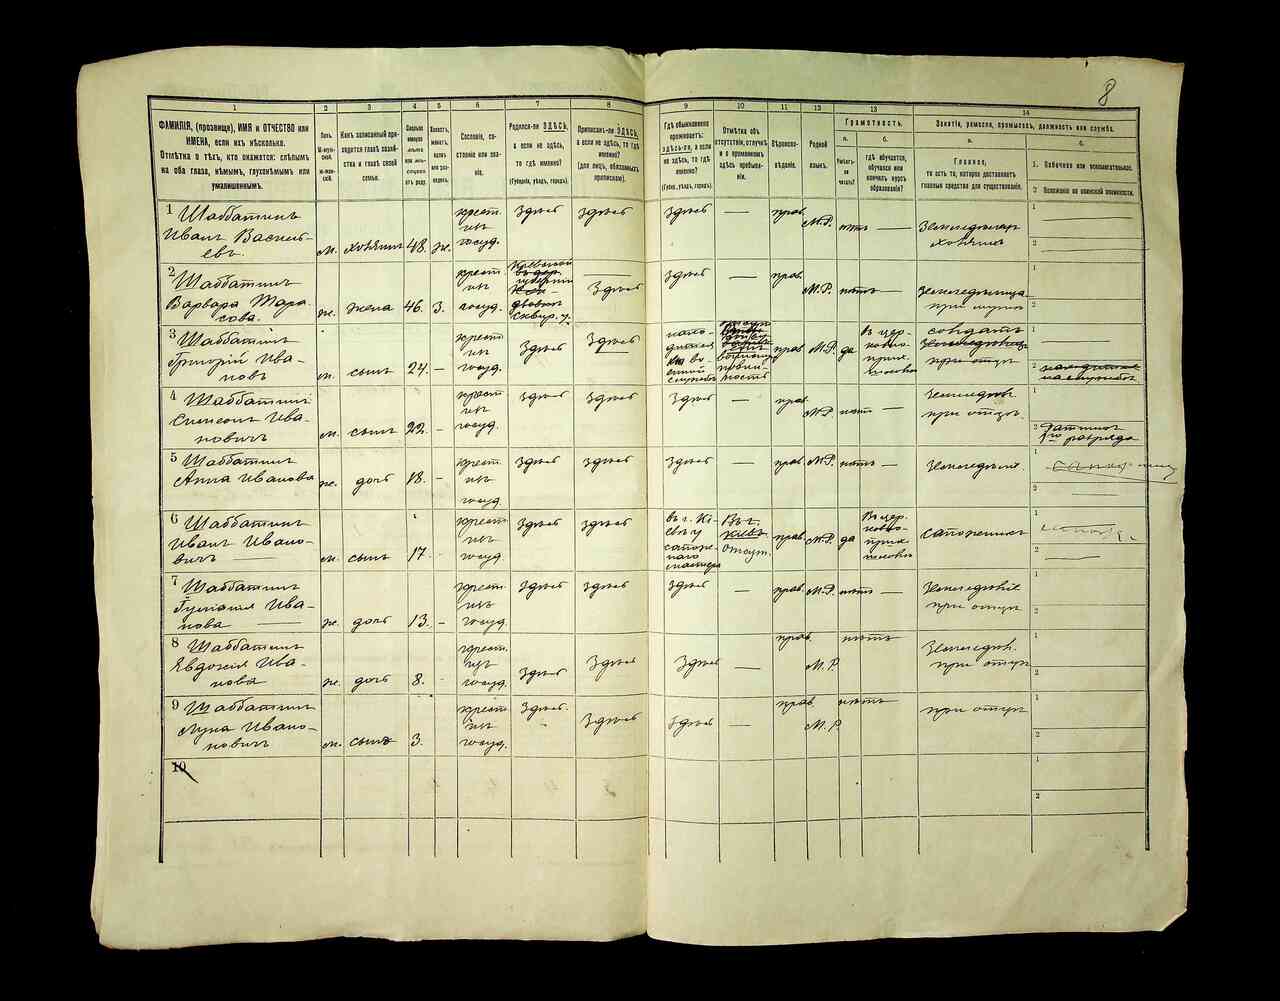 8
1 2 3 4 5 6 7 8 9 10 11 12 13 14
ФАМИЛІЯ, (прозвище), ИМЯ и ОТЧЕСТВО или
ИМЕНА, если ихъ нѣсколько.
Отмѣтка о тѣхъ, кто окажется: слѣпымъ
на оба глаза, нѣмымъ, глухонѣмымъ или
умалишеннымъ.
Полъ.
Какъ записанный при-
ходится главѣ хозяй-
ства и главѣ своей
семьи.
Сословіе, со-
стояніе или зва-
ніе.
Родился-ли ЗДѢСЬ,
а если не здѣсь,
то гдѣ именно?
(Губернія, уѣздъ, городъ).
Приписанъ-ли ЗДѢСЬ,
а если не здѣсь, то гдѣ
именно?
(для лицъ, обязанныхъ
припискою).
Гдѣ обыкновенно
проживаетъ:
ЗДѢСЬ-ли, а если
не здѣсь, то гдѣ
именно?
(Губер., уѣздъ, городъ).
Отмѣтка объ
отсутствіи, отлучкѣ
и о временномъ
здѣсь пребыва-
ніи.
Вѣроиспо-
вѣданіе.
Родной
языкъ.
Грамотность.
а. б.
Умѣетъ-
ли
читать?
гдѣ обучается,
обучался или
кончилъ курсъ
образованія?
Занятіе, ремесло, промыселъ, должность или служба.
а. б.
Главное,
то есть то, которое доставляетъ
главныя средства для существованія.
1. Побочное или вспомогательное.
2. Положеніе по воинской повинности.
1 Шаббатинъ
Иванъ Василь-
евъ.
м. хозяинъ 48. ж. крест. изъ госуд. здѣсь здѣсь здѣсь — прав. М.Р. нѣтъ — Земледѣлецъ хозяинъ
2 Шаббатинъ
Варвара Тара-
сова.
ж. жена 46. 3. крест. изъ госуд. Кіевской губерніи сквир. у. здѣсь здѣсь — прав. М.Р. нѣтъ — Земледѣлица при мужѣ
3 Шаббатинъ
Григорій Ива-
новъ
м. сынъ 24. - крест. изъ госуд. здѣсь здѣсь нахо-дится во-енной службѣ воинскую повин-ность прав. М.Р. да въ цер-ковно-прих. школѣ солдатъ при отцѣ
4 Шаббатинъ
Симеонъ Ива-
новичъ
м. сынъ 22. - крест. изъ госуд. здѣсь здѣсь здѣсь — прав. М.Р. нѣтъ — Земледѣл. при отцѣ
ратникъ
разряда
5 Шаббатинъ
Анна Иванова
ж. дочь 18. - крест. изъ госуд. здѣсь здѣсь здѣсь — прав. М.Р. нѣтъ — Земледѣліе
6 Шаббатинъ
Иванъ Ивано-
вичъ
м. сынъ 17. - крест. изъ госуд. здѣсь здѣсь въ г. Кі-евѣ у сапож-наго мастера Въ г. Кіевѣ отсут. прав. М.Р. да Въ цер-ковно-прих. школѣ сапожникъ
7 Шаббатинъ
Ива-
нова
ж. дочь 13. - крест. изъ госуд. здѣсь здѣсь здѣсь — прав. М.Р. нѣтъ — Земледѣліе при отцѣ
8 Шаббатинъ
Евдокія Ива-
нова
ж. дочь 8. - крест. изъ госуд. здѣсь здѣсь здѣсь — прав. М.Р. нѣтъ Земледѣл. при отцѣ
9 Шаббатинъ
Лука Ивано-
новичъ
м. сынъ 3. крест. изъ госуд. здѣсь здѣсь здѣсь — прав. М.Р. нѣтъ при отцѣ
10